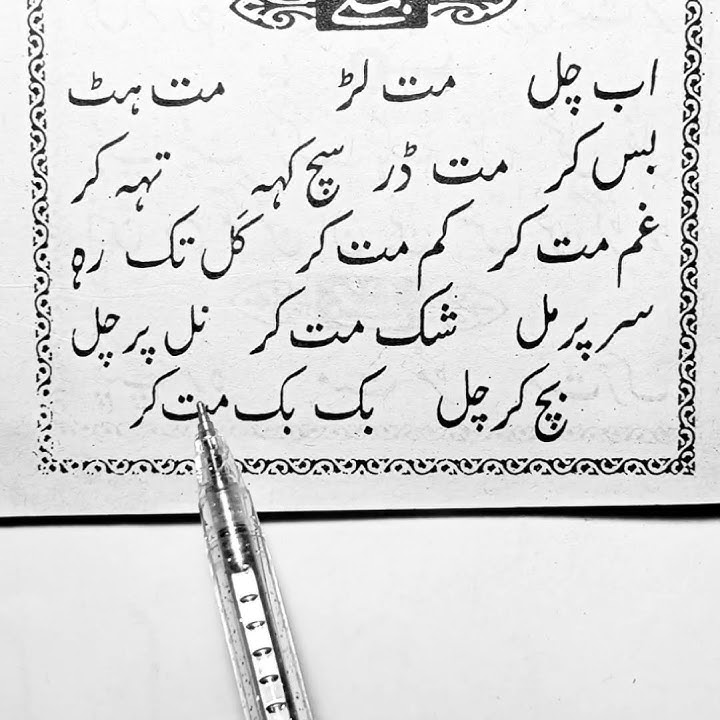 اب چل مت لڑ مت ہٹ
بس کر مت ڈر سچ کہہ تہہ کر
غم مت کر کم مت کر کَل تک رہ
سر پر مل شک مت کر نل پر چل
بچ کر چل بک بک مت کر